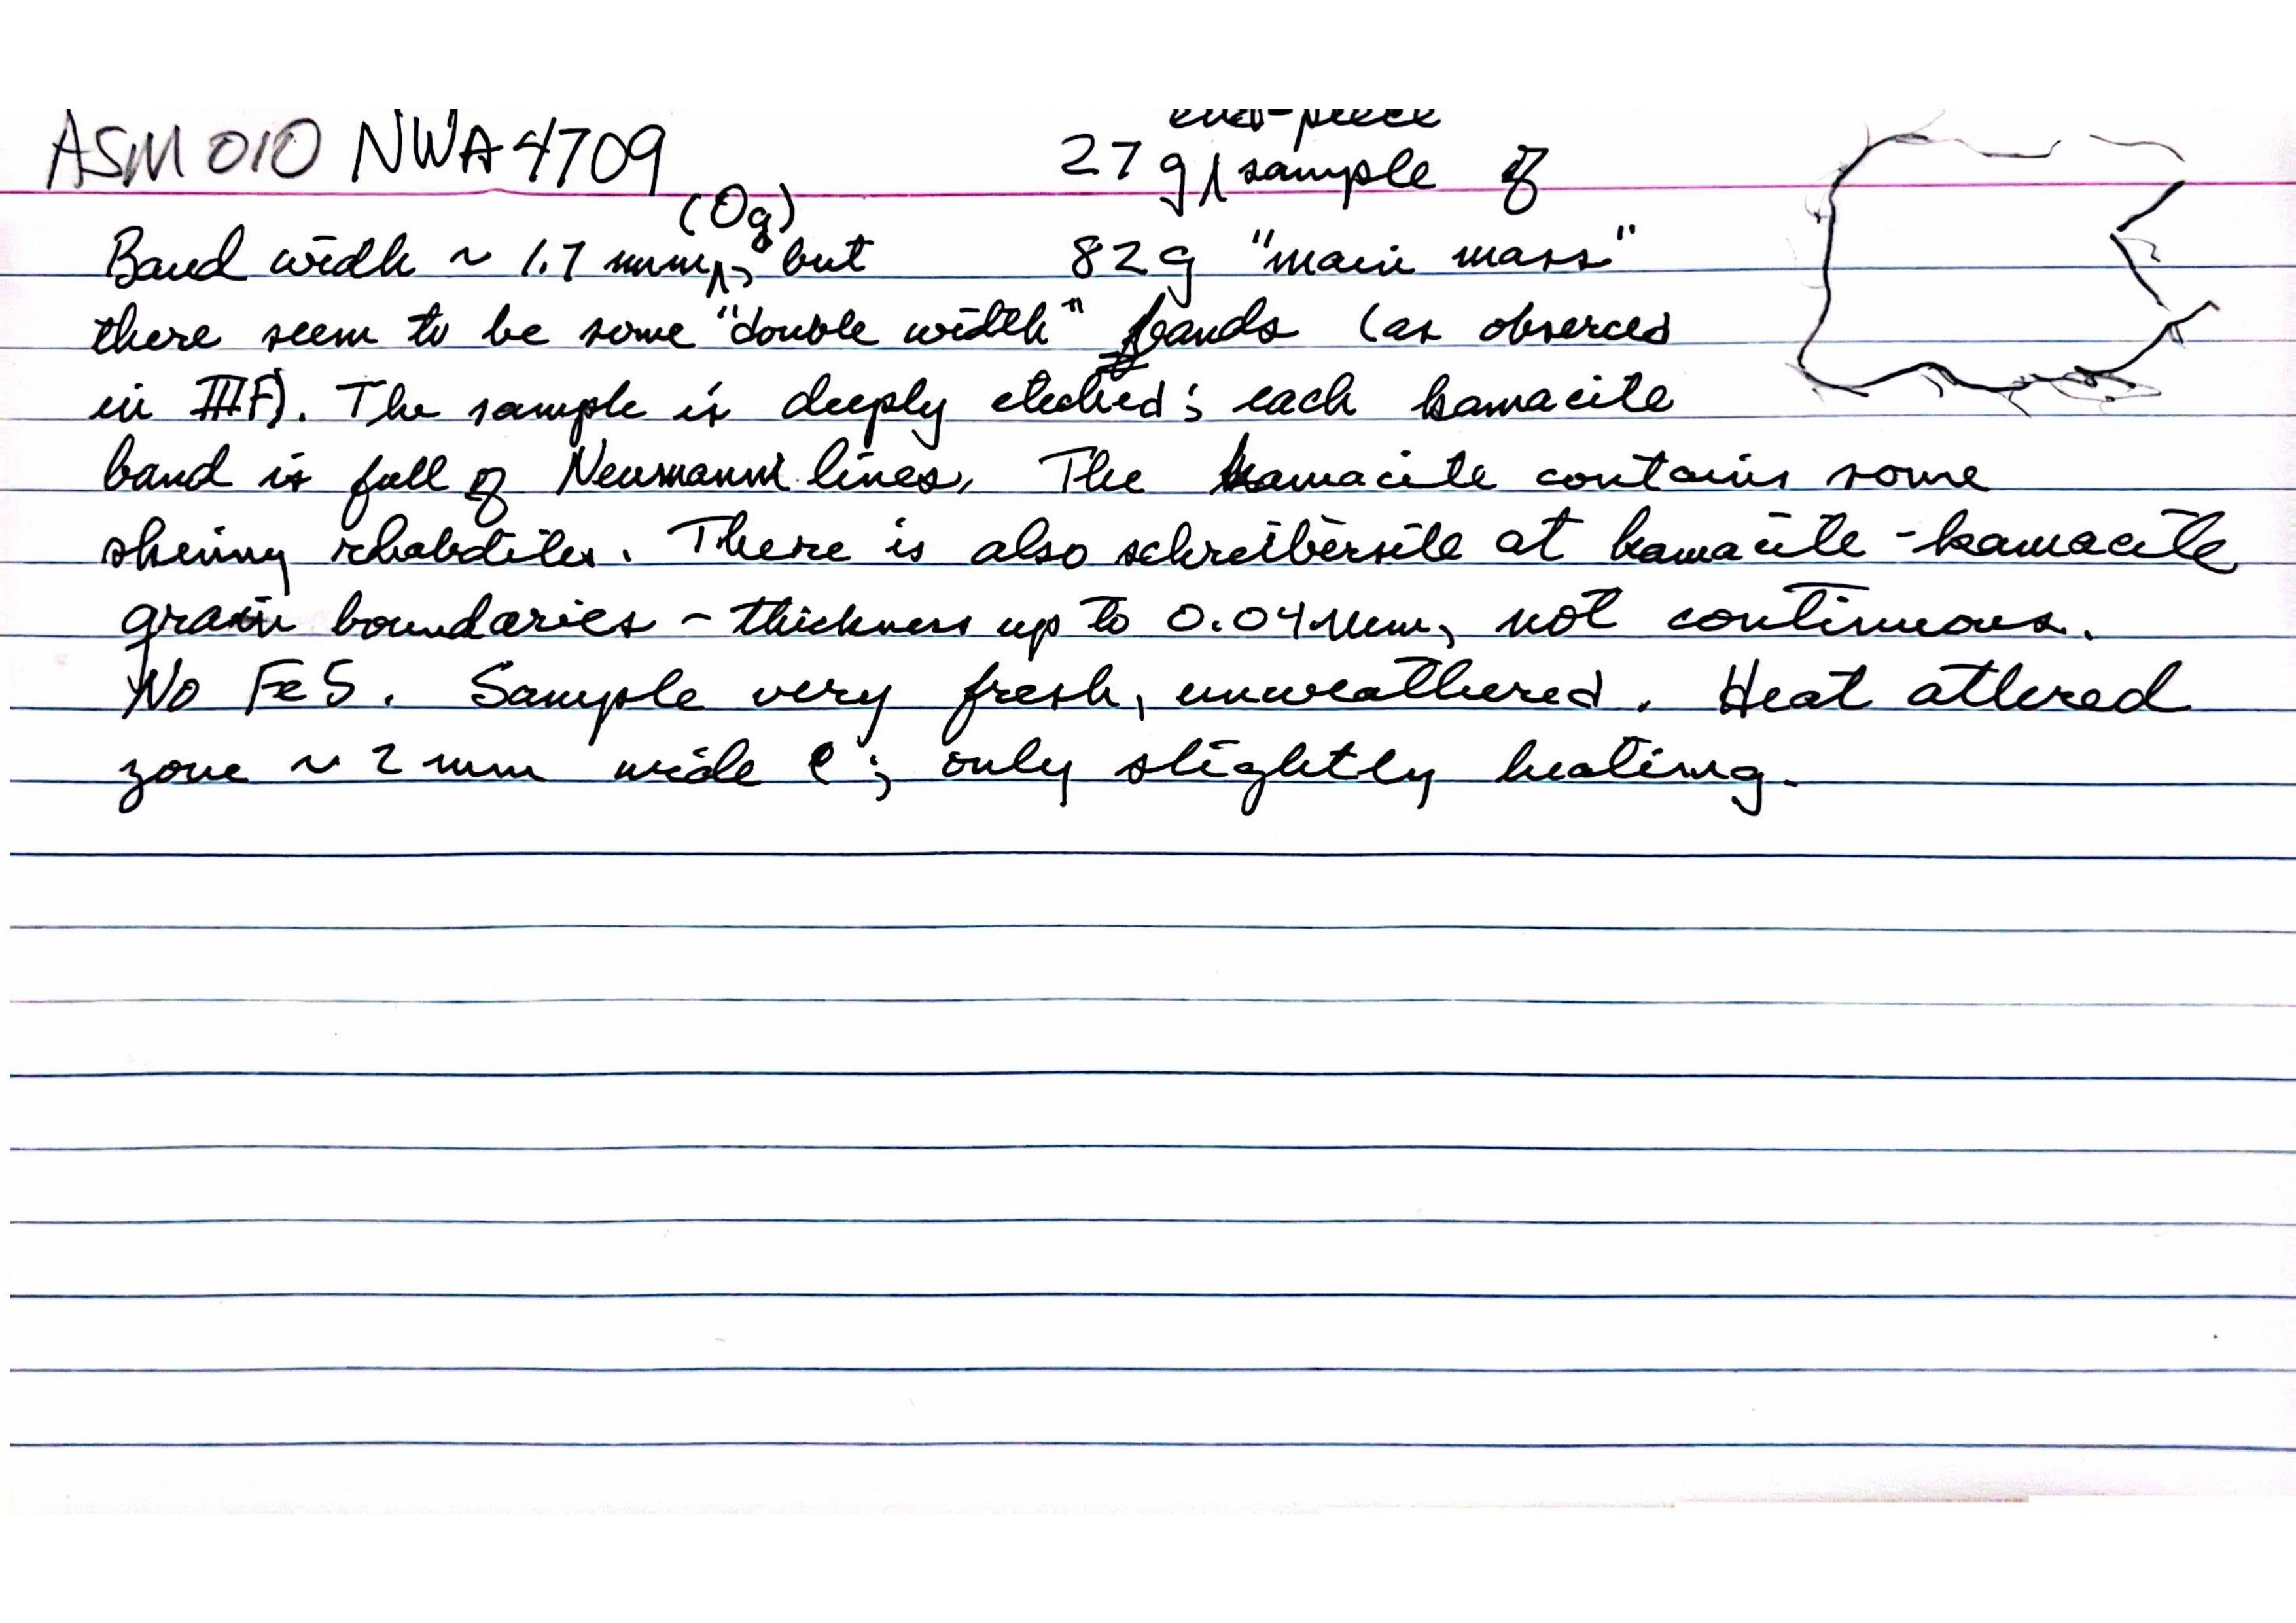 ASM 010 NWA 4709
27 g end-piece sample of
82 g "main mass"
Band width ~ 1.7 mm (Og), but
there seem to be some "double width" bands (as observed
in IIIF). The sample is deeply etched; each kamacite
band is full of Neumann lines. The kamacite contains some
shiny rhabdites. There is also schreibersite at kamacite-kamacite
grain boundaries - thickness up to 0.04 mm, not continuous.
No FeS. Sample very fresh, unweathered. Heat altered
zone ~ 2 mm wide ; only slightly heating.